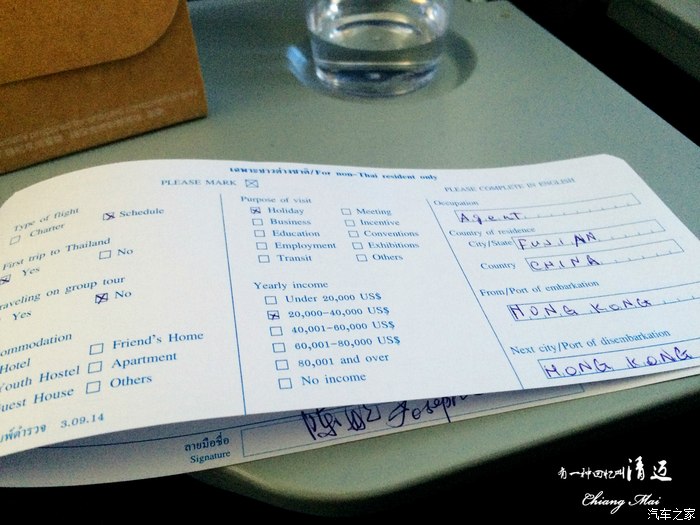 เฉพาะชาวต่างชาติ/For non-Thai resident only
PLEASE MARK ☒
PLEASE COMPLETE IN ENGLISH
Type of flight
☐ Charter ☒ Schedule
First trip to Thailand
☒ Yes ☐ No
raveling on group tour
Yes ☒ No
ommodation
Hotel ☐ Friend's Home
Youth Hostel ☐ Apartment
uest House ☐ Others
3.09.14
Purpose of visit
☒ Holiday ☐ Meeting
☐ Business ☐ Incentive
☐ Education ☐ Conventions
☐ Employment ☐ Exhibitions
☐ Transit ☐ Others
Yearly income
☐ Under 20,000 US$
☒ 20,000-40,000 US$
☐ 40,001-60,000 US$
☐ 60,001-80,000 US$
☐ 80,001 and over
☐ No income
Occupation
Agent
Country of residence
City/State FUJIAN
Country CHINA
From/Port of embarkation
HONG KONG
Next city/Port of disembarkation
HONG KONG
ลายมือชื่อ
Signature
Joseph
有一种回忆叫清迈
Chiang Mai
汽车之家